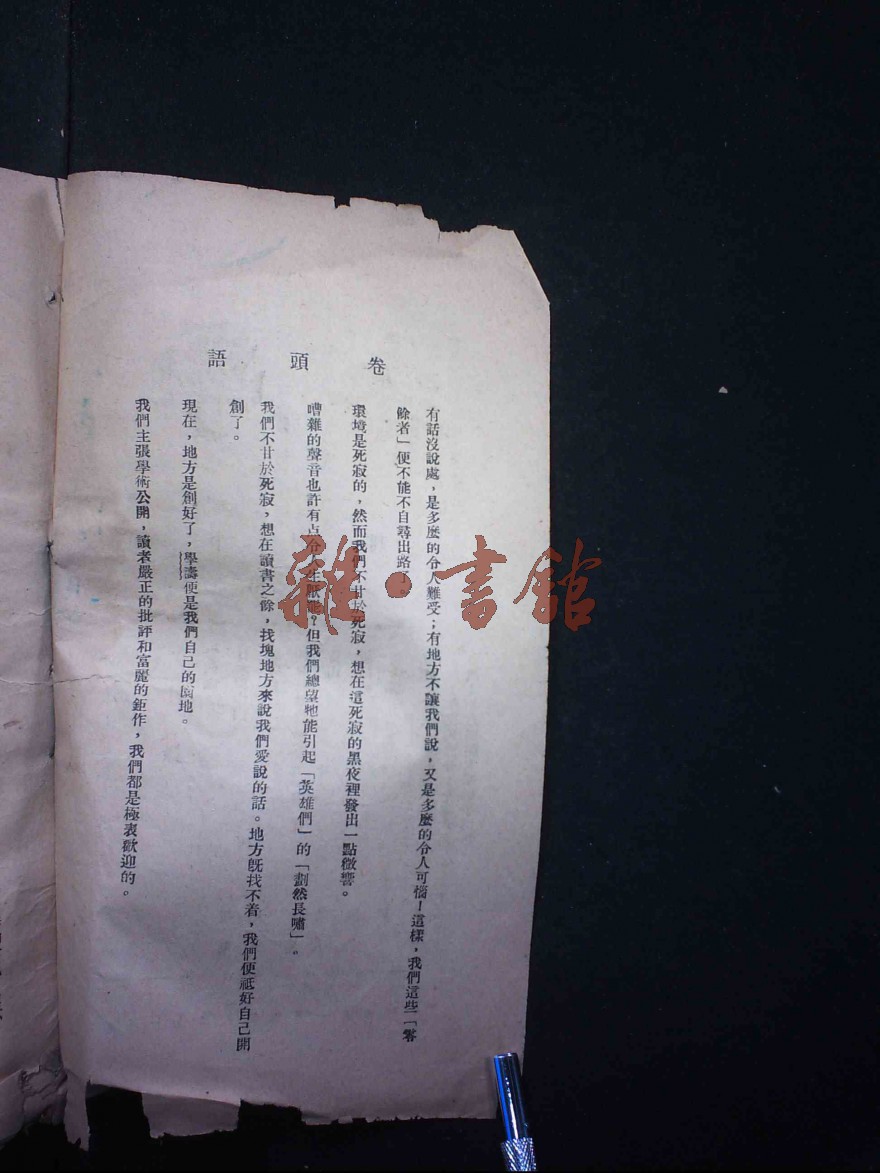 卷頭語
有話沒說處，是多麼的令人難受；有地方不讓我們說，又是多麼的令人可惱！這樣，我們這些「零
餘者」便不能不自尋出路了
環境是死寂的，然而我們不甘於死寂，想在這死寂的黑夜裡發出一點微響。
嘈雜的聲音也許有点令人生厭罷？但我們總望牠能引起「英雄們」的「劃然長嘯」。
我們不甘於死寂，想在讀書之餘，找塊地方來說我們愛說的話。地方旣找不着，我們便祗好自己開
創了。
現在，地方是創好了，學濤便是我們自己的園地。
我們主張學術公開，讀者嚴正的批評和富麗的鉅作，我們都是極表歡迎的。
雜·書館